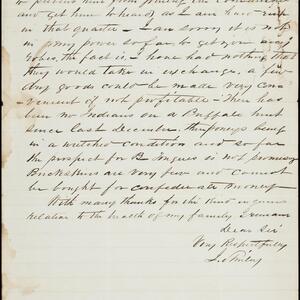 and get him to head) as I am have
in that quarter - I am sorry it is not
in my power so far to get you any
robes, the fact is, I have had nothing that
they would take in exchange, a few
dry goods could be made very con-
venient if not profitable - There has
been no Indians on a Buffalo hunt
since last December, the poneys being
in a wretched condition and so far
the prospect for B Tongues is not promising
Buckskins are very few and cannot
be bought for confederate money
With many thanks for the kind
relative to the health of my family I remain
Dear Sir
Very Respectfully